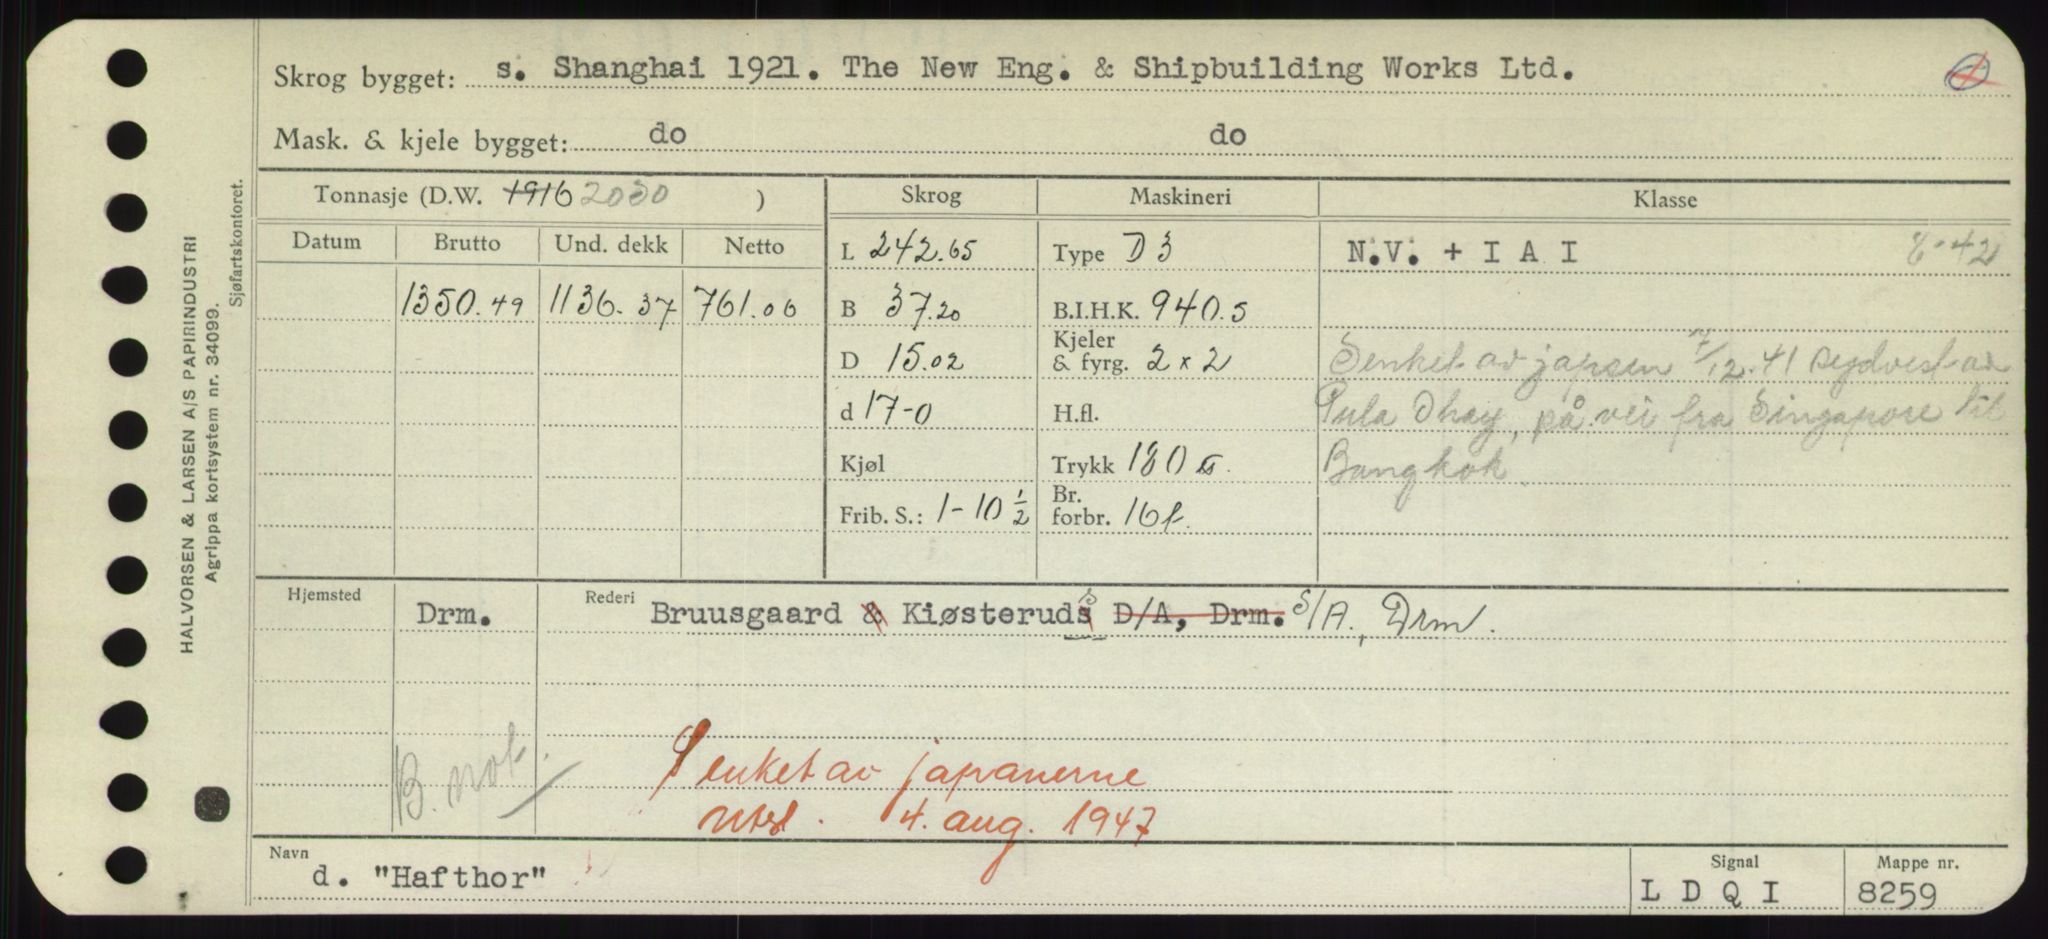 Skrog bygget: s. Shanghai 1921. The New Eng. & Shipbuilding Works Ltd.
Mask. & kjele bygget: do do
Tonnasje (D.W. 1916 2030 )
Skrog
Maskineri
Klasse
Datum Brutto Und. dekk Netto
L 242.65
Type D 3
N.V. + I A I 8-42
1350.49 1136.37 761.06
B 37.20
B.I.H.K. 940.5
D 15.02
Kjeler
& fyrg. 2 x 2
Senket av japsen 7/12.41 sydvest av
d 17-0
H.fl.
Pula Obay, på vei fra Singapore til
Kjøl
Trykk 180
Bangkok.
Frib. S.: 1-10 1/2
Br.
forbr. 16 t.
Hjemsted Drm.
Rederi Bruusgaard & Kiøsteruds D/A, Drm. S/A., Drm.
B. not.
Senket av japanerne
4. aug. 1947
Navn
d. "Hafthor"
Signal
L D Q I
Mappe nr.
8259
HALVORSEN & LARSEN A/S PAPIRINDUSTRI
Agrippa kortsystem nr. 34099.
Sjøfartskontoret.